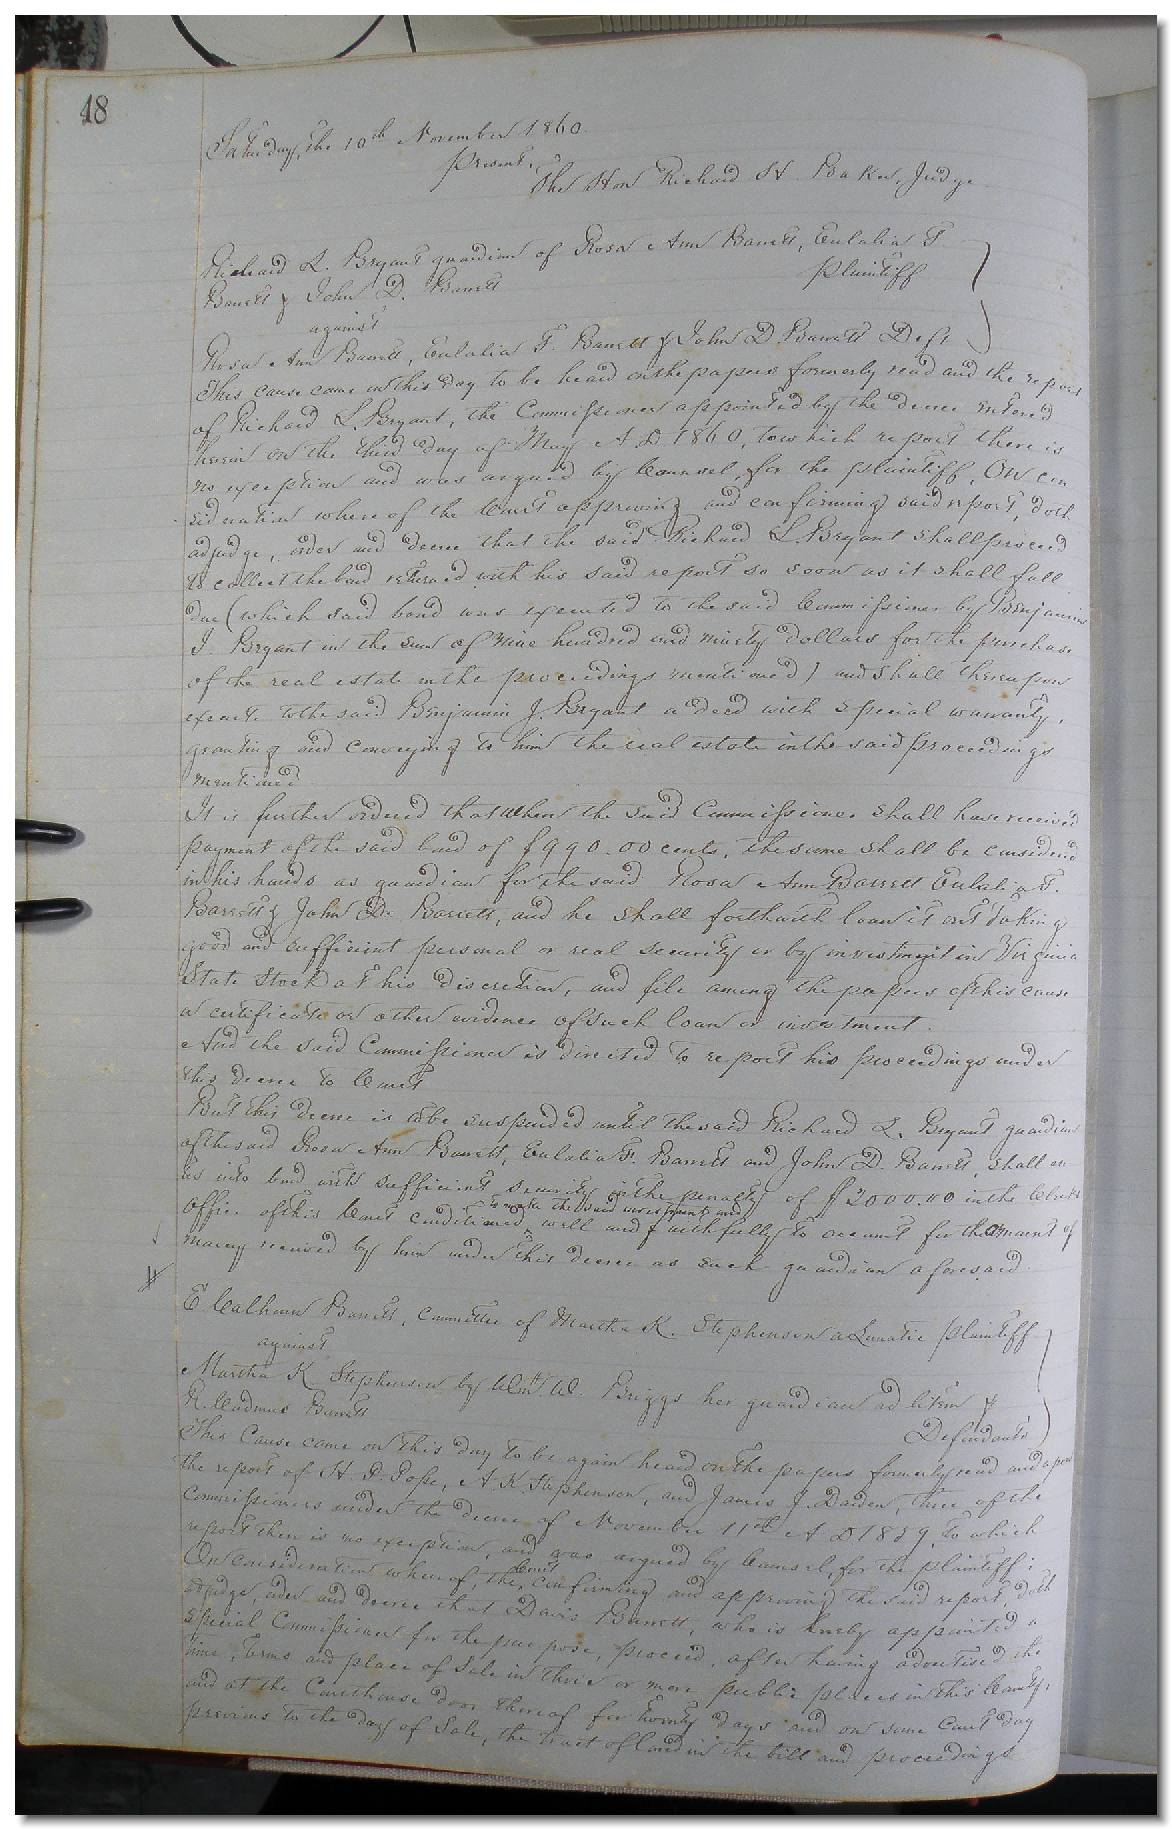 48
Saturday, the 10th November 1860.
Present,
The Hon Richard H Baker, Judge
Richard L. Bryant guardian of Rosa Ann Barrett, Eulalia F.
Barrett & John D. Barrett Plaintiff
against
Rosa Ann Barrett, Eulalia F. Barrett & John D Barrett Defts
This cause came on this day to be heard on the papers formerly read and the report
of Richard L. Bryant, the Commissioner appointed by the decree entered
herein on the third day of May A D 1860, to which report there is
no exception and was argued by Counsel, for the plaintiff, On con
sideration whereof the Court approving and confirming said report, doth
adjudge, order and decree that the said Richard L. Bryant shall proceed
to collect the bond returned with his said report so soon as it shall fall
due (which said bond was executed to the said Commissioner by Benjamin
J. Bryant in the sum of nine hundred and ninety dollars for the purchase
of the real estate in the proceedings mentioned) and shall thereupon
execute to the said Benjamin J. Bryant a deed with special warranty,
granting and conveying to him the real estate in the said proceedings
mentioned
It is further ordered that when the said Commissioner shall have received
payment of the said bond of $990.00 cents, the same shall be considered
in his hands as guardian for the said Rosa Ann Barrett Eulalia F.
Barrett & John D. Barrett, and he shall forthwith loan it out taking
good and sufficient personal or real security or by investment in Virginia
State Stock at his discretion, and file among the papers of this cause
a certificate or other evidence of such loan or investment.
And the said Commissioner is directed to report his proceedings under
this decree to Court
But this decree is to be suspended until the said Richard L. Bryant guardian
of the said Rosa Ann Barrett, Eulalia F. Barrett and John D. Barrett, shall en
ter into bond with sufficient security in the penalty of $2000.00 in the Clerks
to make the said investment and
Office of this Court conditioned, well and faithfully to account for the amount of
money received by him under this decree as such guardian aforesaid.
E Calhoun Barrett, Committee of Martha K. Stephenson a Lunatic Plaintiff
against
Martha K Stephenson by Wm W. Briggs her guardian ad litem &
R. Cadmus Barrett Defendants
This Cause came on this day to be again heard on the papers formerly read and upon
the report of H. P. Pope, A. K. Stephenson, and James J. Darden, three of the
Commissioners under the decree of November 11th A D 1859, to which
report there is no exception, and was argued by Counsel, for the plaintiff;
Court
On Consideration whereof, the, confirming and approving the said report, doth
adjudge, order and decree that Davis Barrett, who is hereby appointed a
Special Commissioner for the purpose, proceed, after having advertised the
time, terms and place of Sale in three or more public places in this County,
and at the Courthouse door thereof for twenty days and on some Court day
previous to the day of Sale, the tract of land in the bill and proceedings